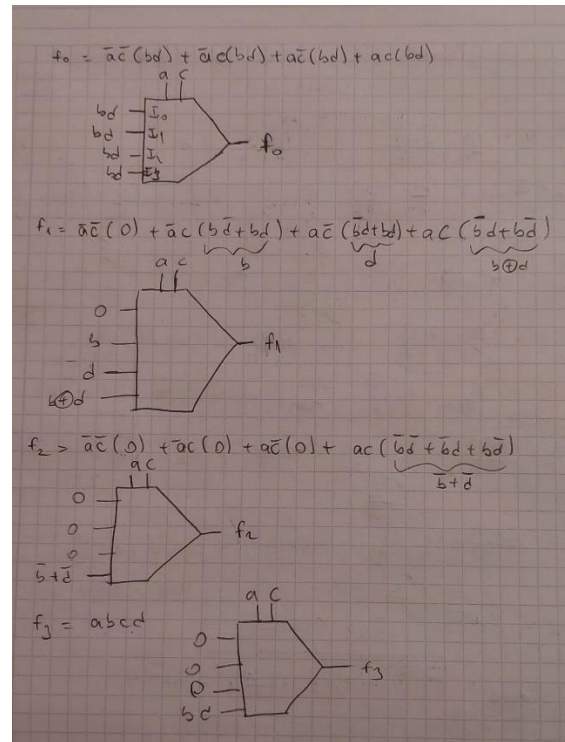 f₀ = a̅c̅(bd) + a̅c(bd) + ac̅(bd) + ac(bd)
a c
bd I₀
bd I₁
bd I₂
bd I₃
f₀
f₁ = a̅c̅(0) + a̅c(bd̅+bd) + ac̅(b̅d+bd) + ac(b̅d+bd̅)
b d b⊕d
a c
0
b
d
b⊕d
f₁
f₂ = a̅c̅(0) + a̅c(0) + ac̅(0) + ac(b̅d̅+b̅d+bd̅)
b̅+d̅
a c
0
0
0
b̅+d̅
f₂
f₃ = abcd
a c
0
0
0
bd
f₃